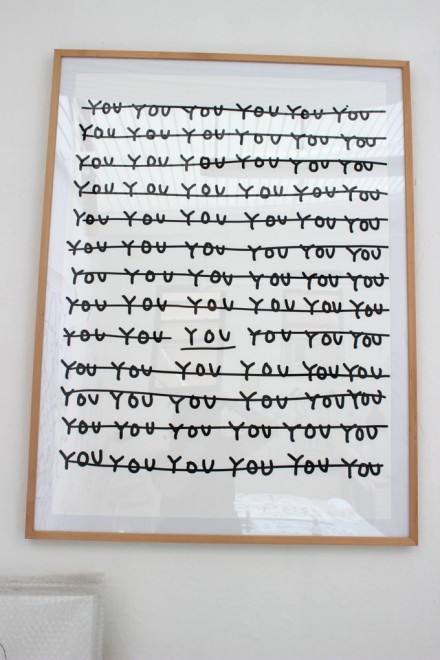 YOU YOU YOU YOU YOU YOU
YOU YOU YOU YOU YOU YOU
YOU YOU YOU YOU YOU YOU
YOU YOU YOU YOU YOU YOU
YOU YOU YOU YOU YOU YOU
YOU YOU YOU YOU YOU YOU
YOU YOU YOU YOU YOU YOU
YOU YOU YOU YOU YOU YOU
YOU YOU YOU YOU YOU YOU
YOU YOU YOU YOU YOU YOU
YOU YOU YOU YOU YOU YOU
YOU YOU YOU YOU YOU YOU
YOU YOU YOU YOU YOU YOU